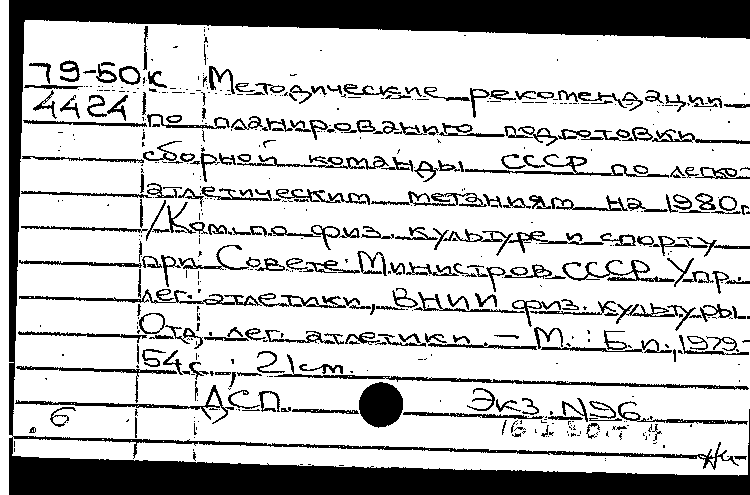 79-50к Методические рекомендации
4424 по планированию подготовки
сборной команды СССР по легко-
атлетическим метаниям на 1980г.
/Ком. по физ. культуре и спорту
при Совете Министров СССР. Упр.
лег. атлетики, ВНИИ физ. культуры
Отд. лег. атлетики. — М. : Б.и., 1979-
54с. ; 21см.
ДСП. Экз. N96.
6